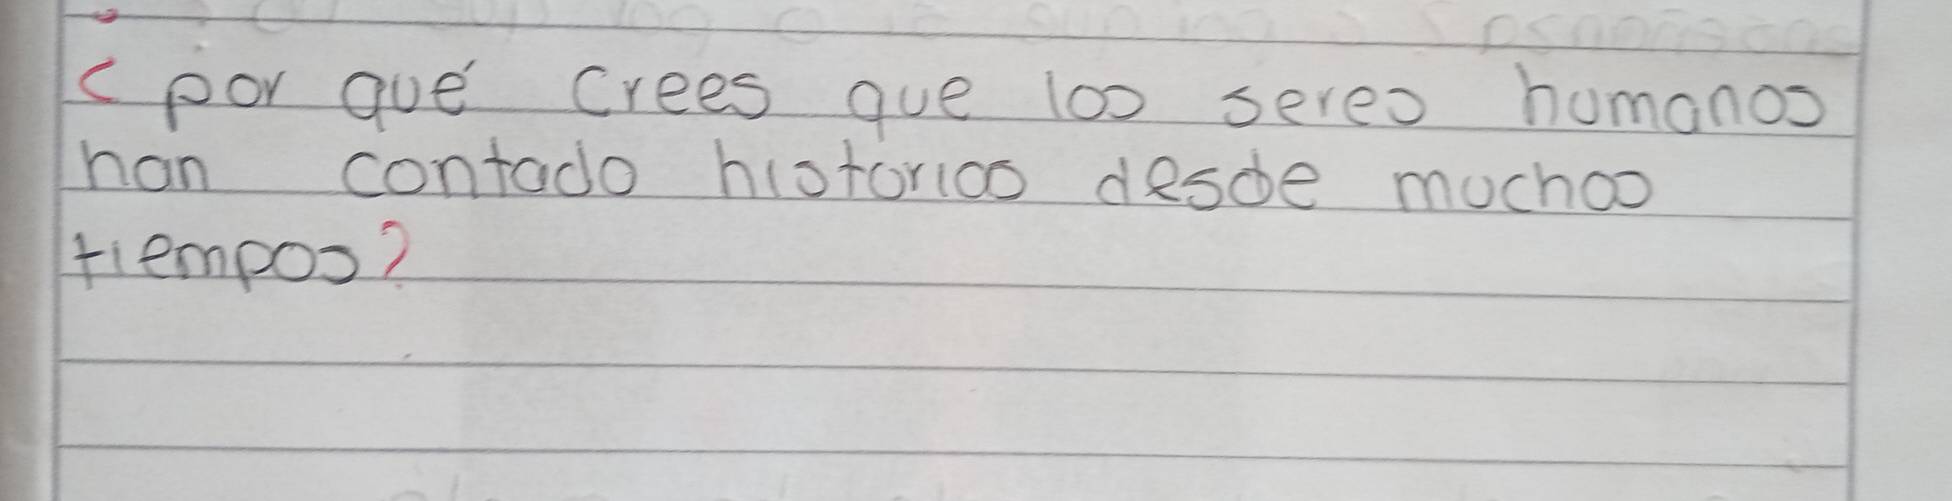 ¿por qué crees que los seres humanos
han contado historias desde muchos
tiempos?